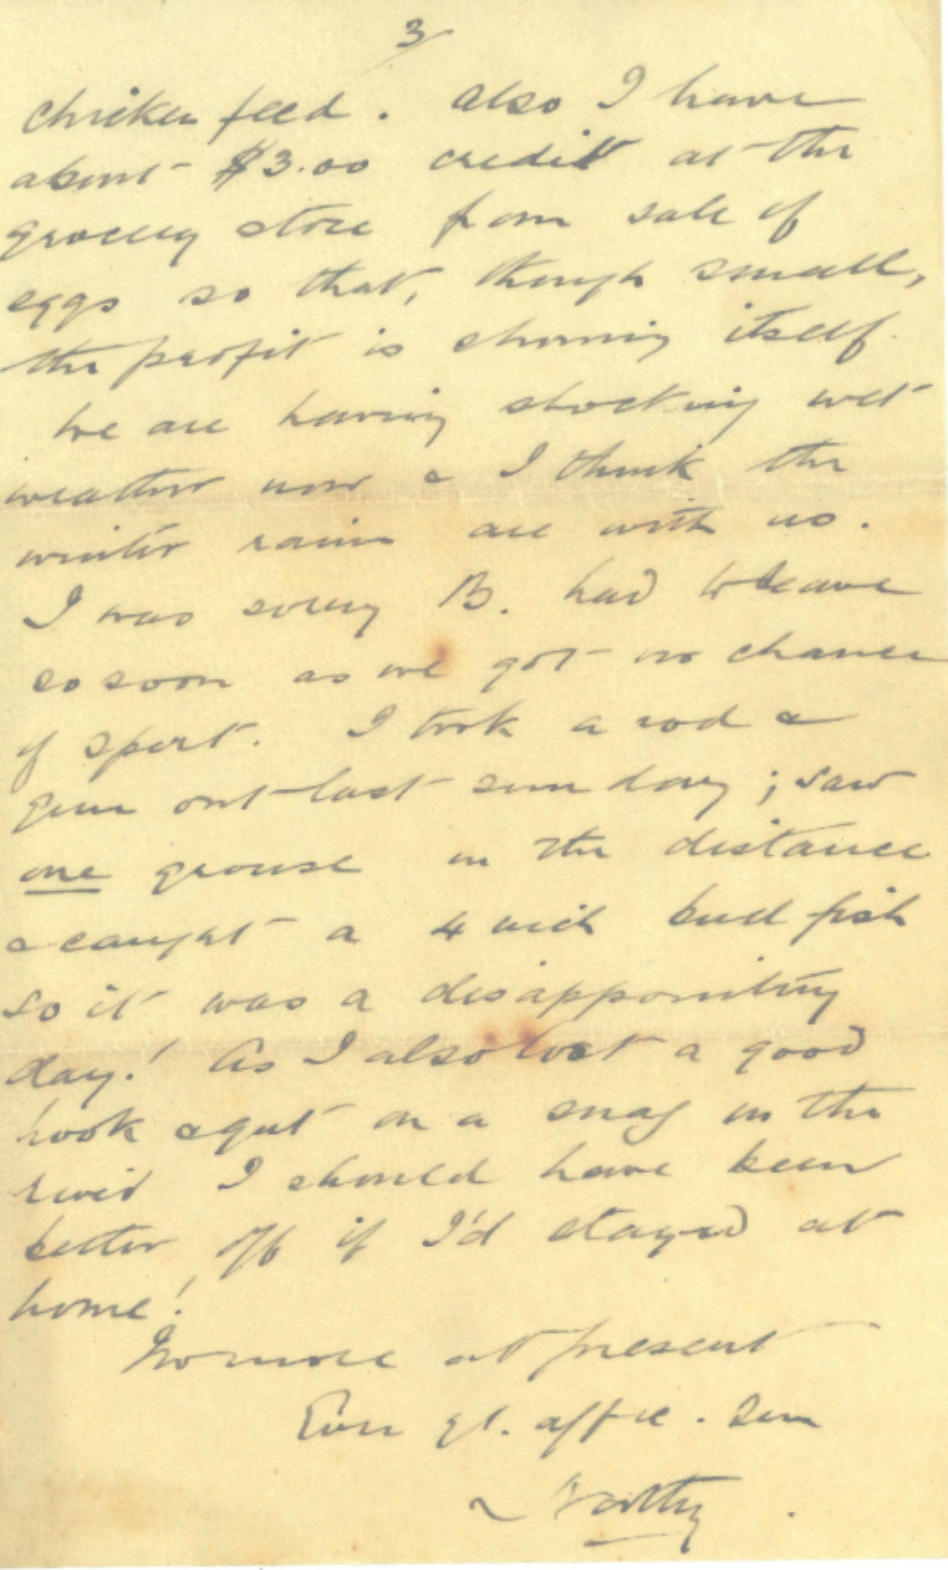 3/
chicken feed. Also I have
about $3.00 credit at the
grocery store from sale of
eggs so that, though small,
the profit is showing itself.
We are having shocking wet
weather now & I think the
winter rains are with us.
I was sorry B. had to leave
so soon as we got no chance
of sport. I took a rod &
gun out last Sunday; saw
one grouse in the distance
& caught a 4 inch bull fish
so it was a disappointing
day! As I also lost a good
hook & gut on a snag in the
river I should have been
better off if I'd stayed at
home!
No more at present
Ever yr. affte. Son